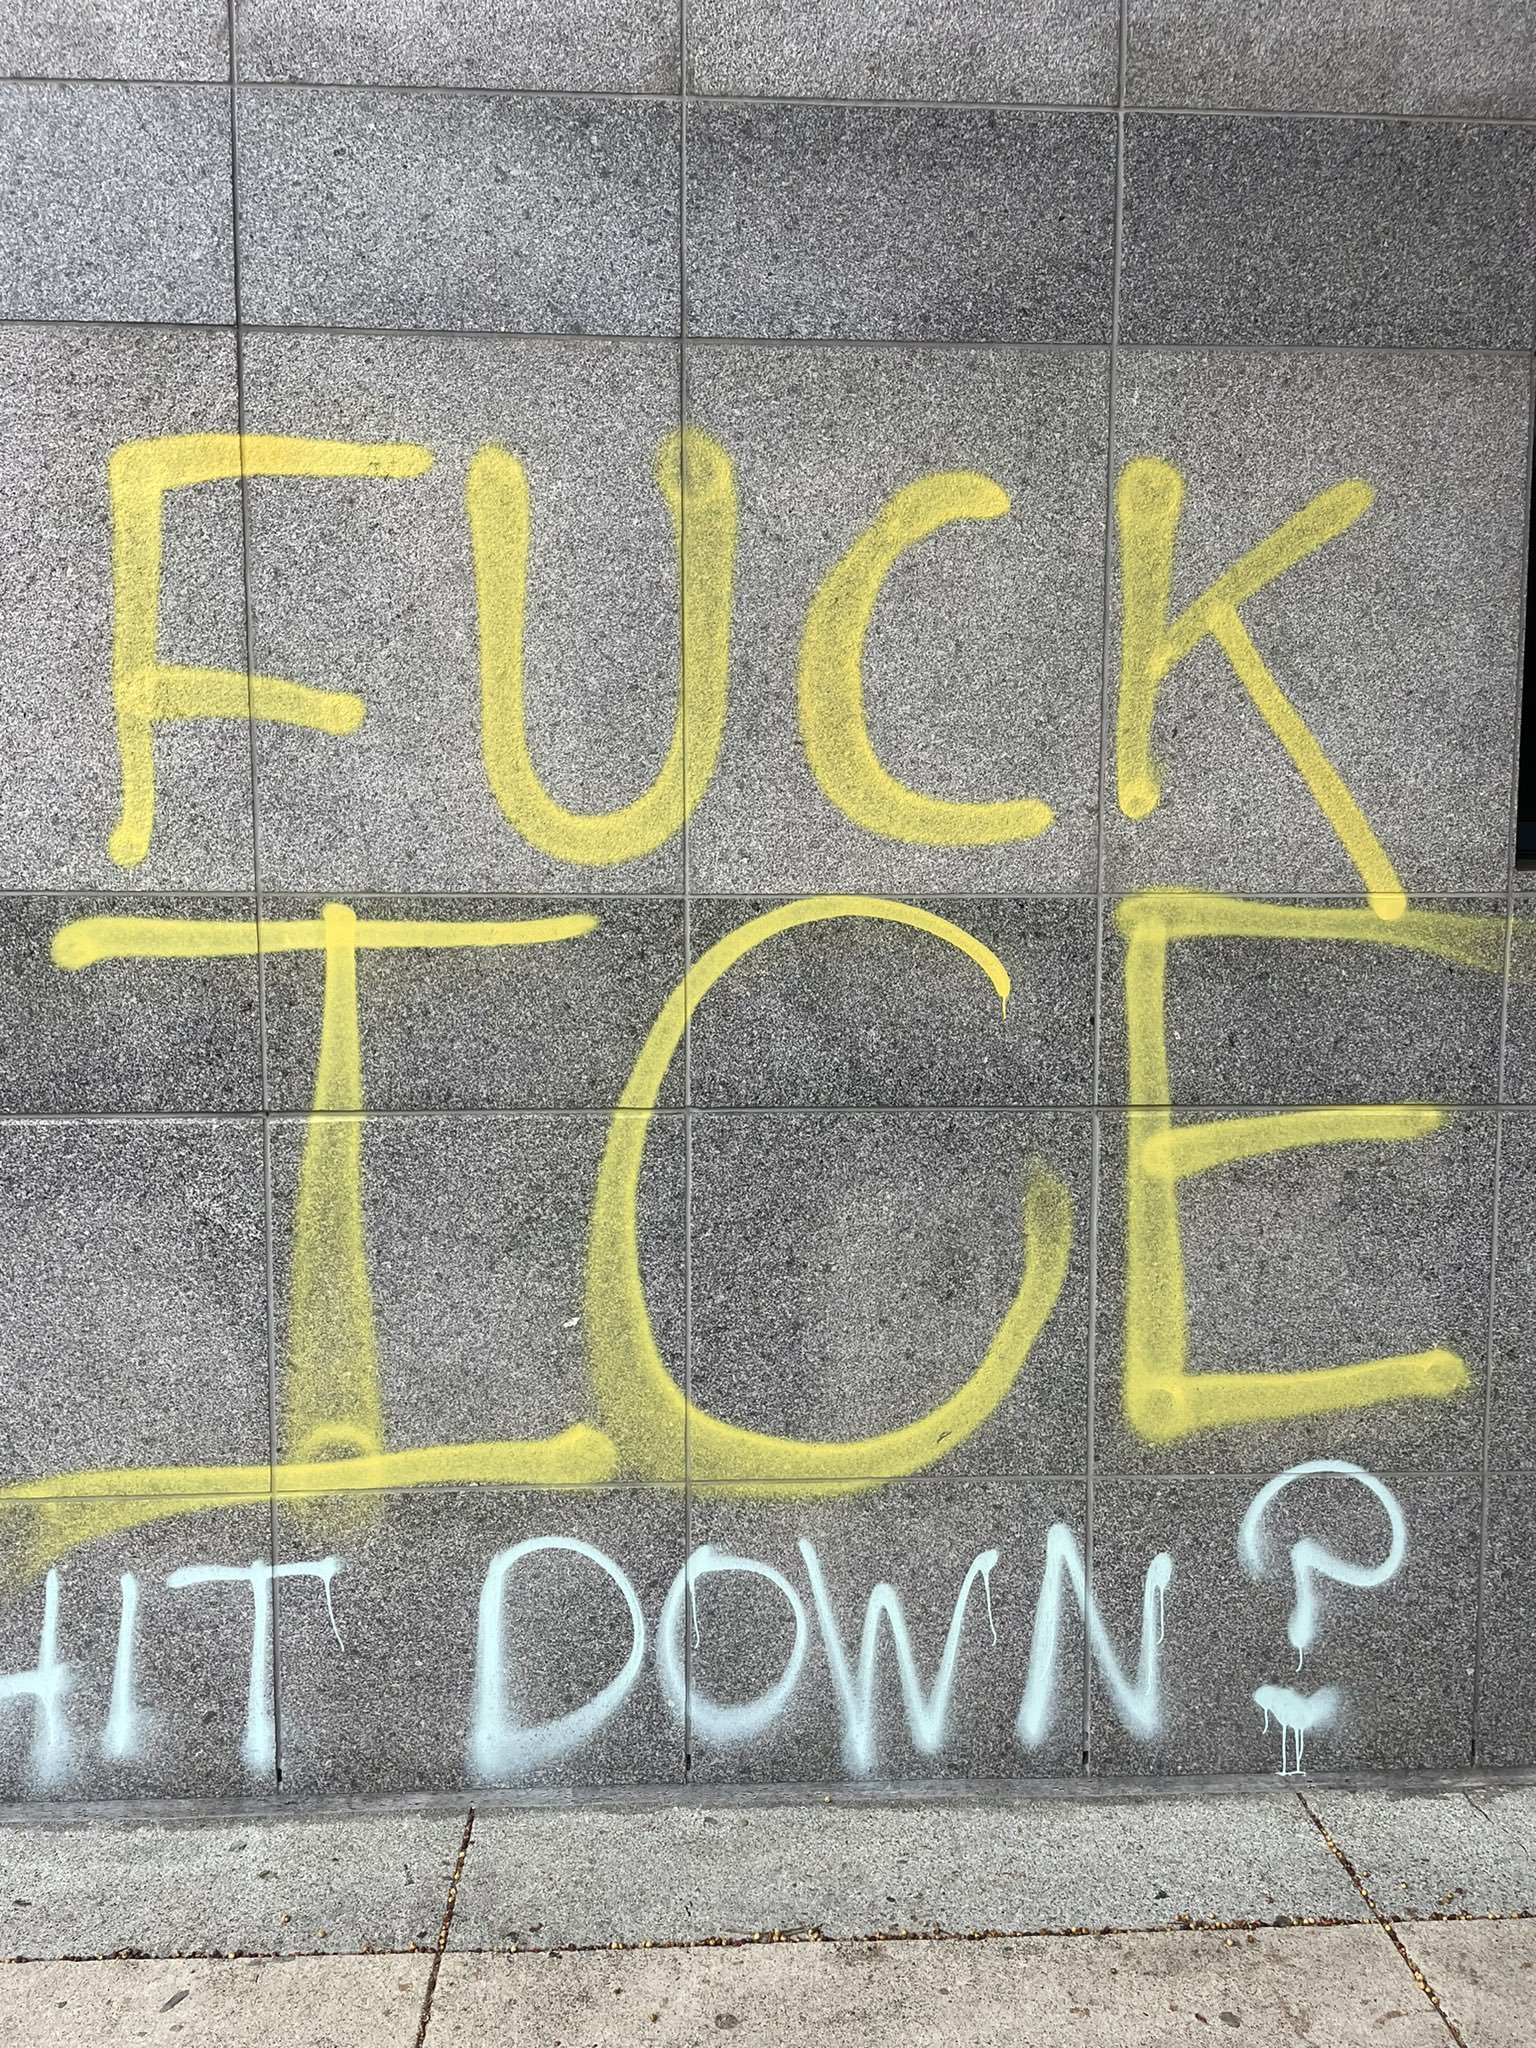 FUCK
ICE
HIT DOWN?